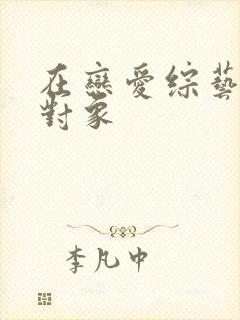 在戀愛綜藝
對象
李凡中